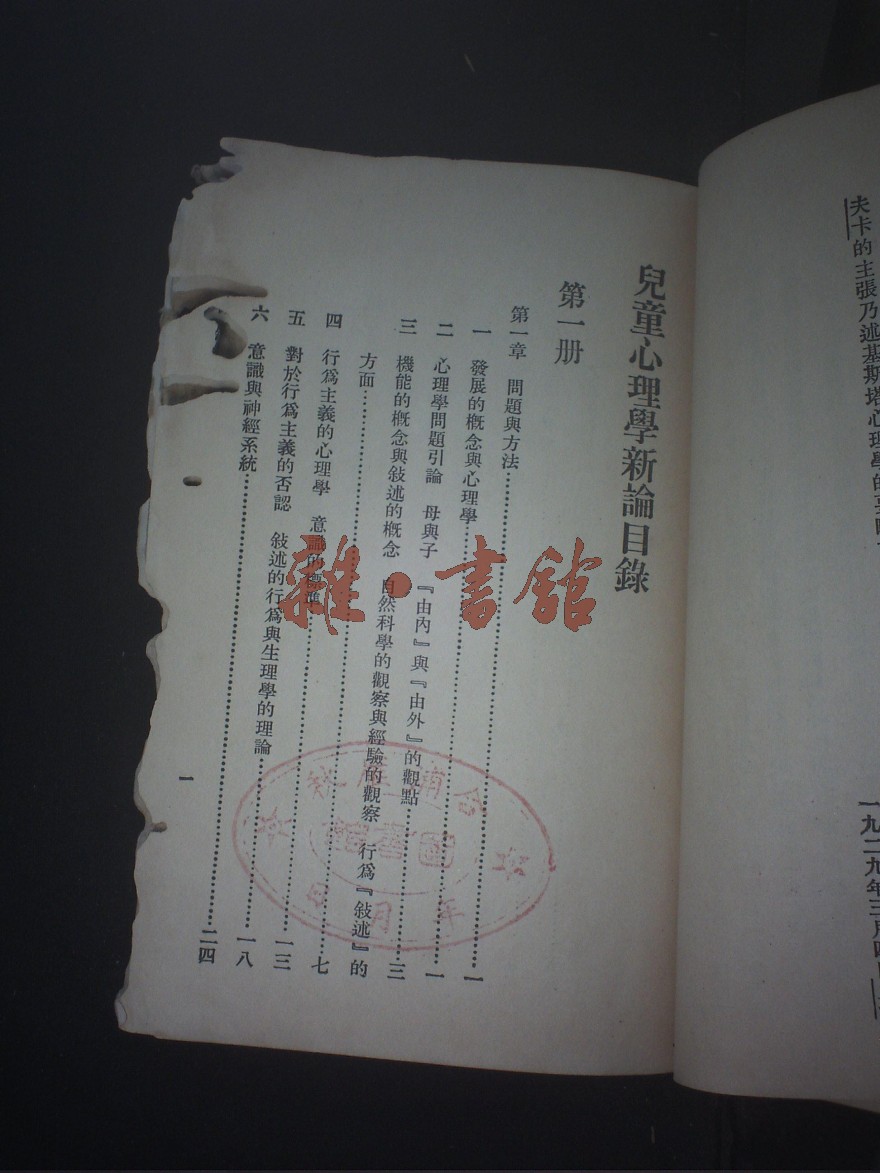 夫卡的主張乃述基斯塔心理學的
一九二九年三月
兒童心理學新論目錄
第一册
第一章 問題與方法……一
一 發展的概念與心理學……一
二 心理學問題引論 母與子 『由內』與『由外』的觀點……三
三 機能的概念與敍述的概念 自然科學的觀察與經驗的觀察 行爲『敍述』的
方面……七
四 行爲主義的心理學 意識的標準……一三
五 對於行爲主義的否認 敍述的行爲與生理學的理論……一八
六 意識與神經系統……二四
一
雜·書館
圖書館
年月日